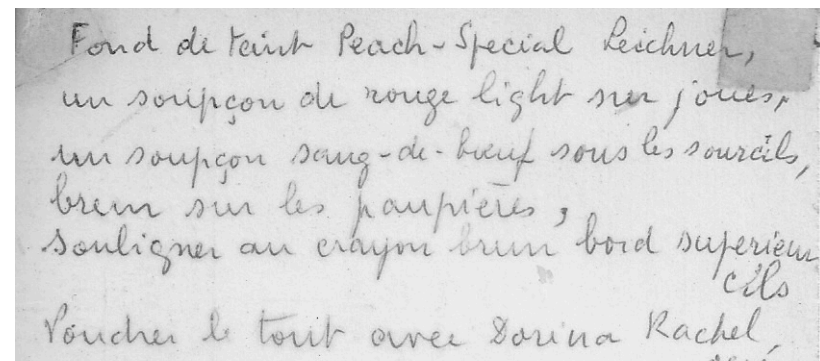 Fond de teint Peach-Special Leichner,
un soupçon de rouge light sur joues,
un soupçon sang-de-bœuf sous les sourcils,
brun sur les paupières,
souligner au crayon brun bord superieur
cils
le tout avec Dorina Rachel,